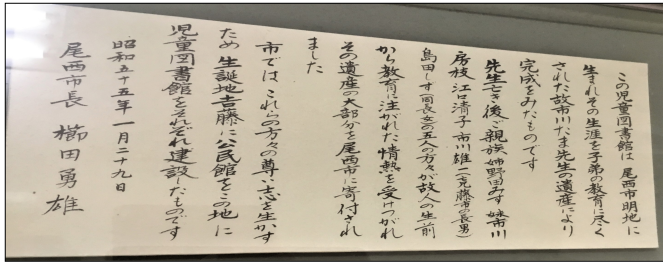 この児童図書館は 尾西市明地に
生まれその生涯を子弟の教育に尽く
された故市川たま先生の遺産により
完成をみたものです
先生亡き後ご親族 姉野田みす 妹市川
房枝 江口清子 市川雄一(兄藤市の長男)
島田しす(同長女)の五人の方々が故人の生前
から教育に注がれた情熱を受けつがれ
その遺産の大部分を尾西市に寄付され
ました
市では、これらの方々の尊い志を生かす
ため 生誕地吉藤に公民館をこの地に
児童図書館をそれぞれ建設したものです
昭和五十五年一月二十九日
尾西市長 櫛田勇雄